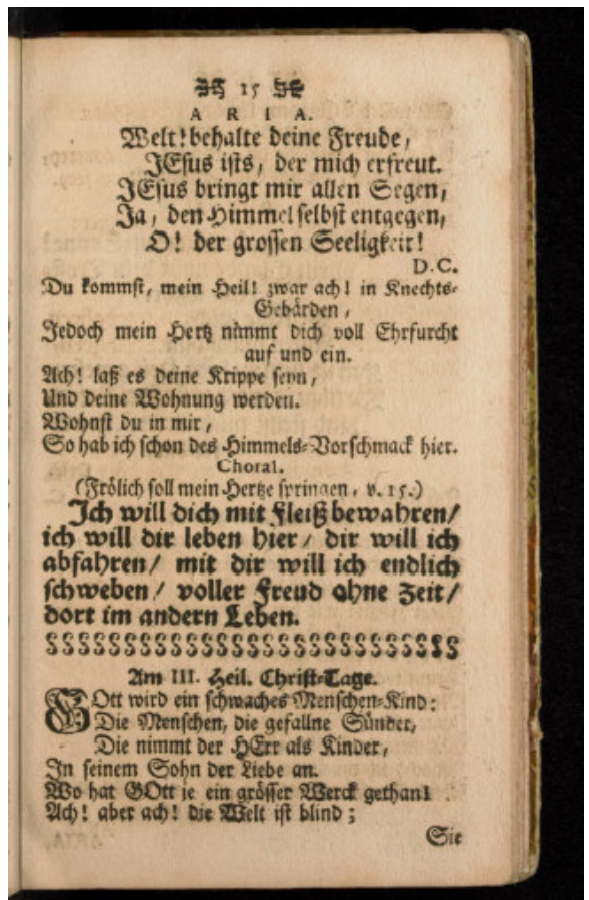 15
ARIA.
Welt! behalte deine Freude,
JEsus ists, der mich erfreut.
JEsus bringt mir allen Segen,
Ja, den Himmel selbst entgegen,
O! der grossen Seeligkeit!
D.C.
Du kommst, mein Heil! zwar ach! in Knechts-
Gebärden,
Jedoch mein Hertz nimmt dich voll Ehrfurcht
auf und ein.
Ach! laß es deine Krippe seyn,
Und deine Wohnung werden.
Wohnst du in mir,
So hab ich schon des Himmels-Vorschmack hier.
Choral.
(Frölich soll mein Hertze springen, v. 15.)
Ich will dich mit Fleiß bewahren/
ich will dir leben hier/ dir will ich
abfahren/ mit dir will ich endlich
schweben/ voller Freud ohne Zeit/
dort im andern Leben.
Am III. Heil. Christ-Tage.
GOtt wird ein schwaches Menschen-Kind:
Die Menschen, die gefallne Sünder,
Die nimmt der HErr als Kinder,
In seinem Sohn der Liebe an.
Wo hat GOtt je ein grösser Werck gethan!
Ach! aber ach! die Welt ist blind;
Sie